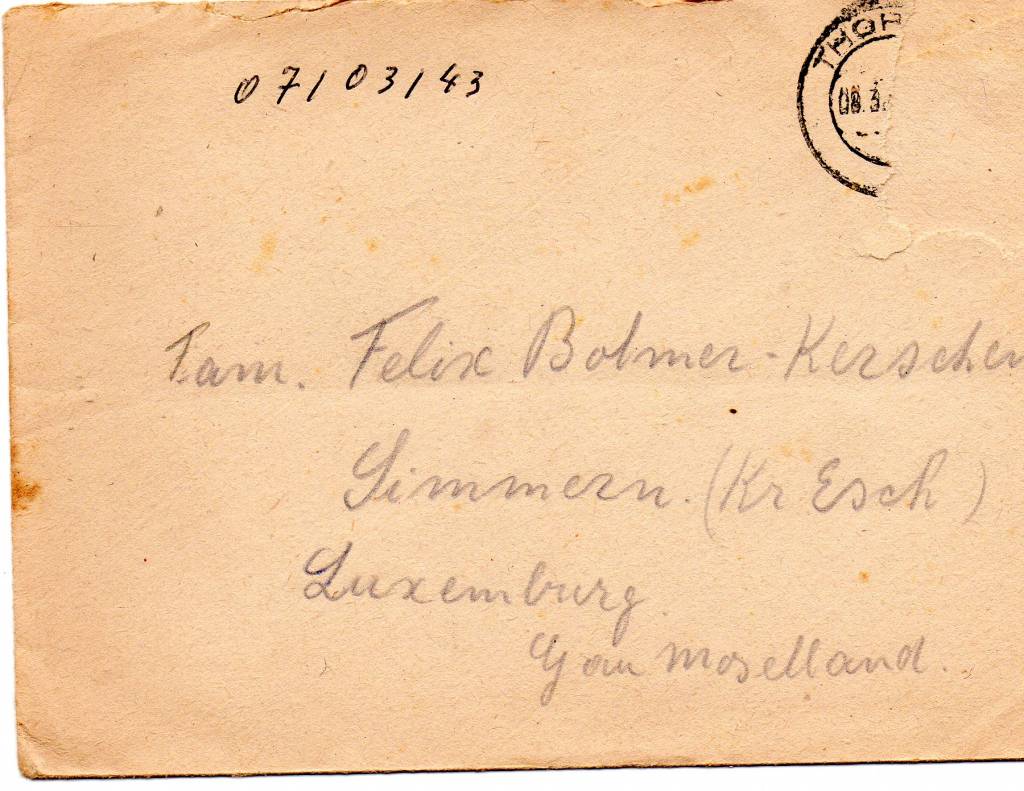 07/03/43
THOR
08.3.
Fam. Felix Bolmer-Kerschen
Simmern. (Kr Esch)
Luxemburg
Gau Moselland.